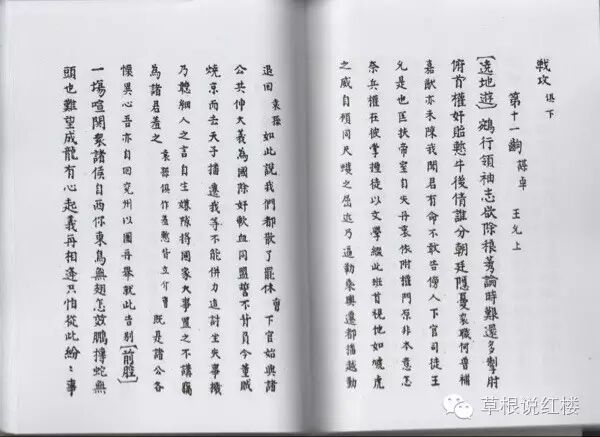 戰攻 俱下
第十一齣 謀卓 王允上
〔遶地遊〕鵷行領袖志欲除稂莠論時艱還多掣肘
俯首權奸貽愁牛後情誰分朝廷隱憂袞職何曾補
嘉猷亦未陳我聞君有命不敢告傍人下官司徒王
允是也匡扶帝室自失丹衷依附權門原非本意怎
奈兵權在彼掌握徒以文學綴此班首視他如唬虎
之威自領同尺蠖之屈近乃逼勒乘輿遷都播越動
退回 袁孫 如此說我們都散了罷休 曹 下官始與諸
公共伸大義為國除奸軟血同盟誓不甘負今董賊
燒京西去天子播遷我等不能併力追討坐失事機
乃聽細人之言自生嫌隙將國家大事置之不講竊
為諸君羞之 袁孫俱作羞慙皆立介 曹 既是諸公各
懷異心吾亦自回兗州以圖再舉就此告別〔前腔〕
一場喧鬨衆諸侯自西你東鳥無翅怎效鵬摶蛇無
頭也難望成龍有心起義再相逢只怕從此紛〻事
草根说红楼